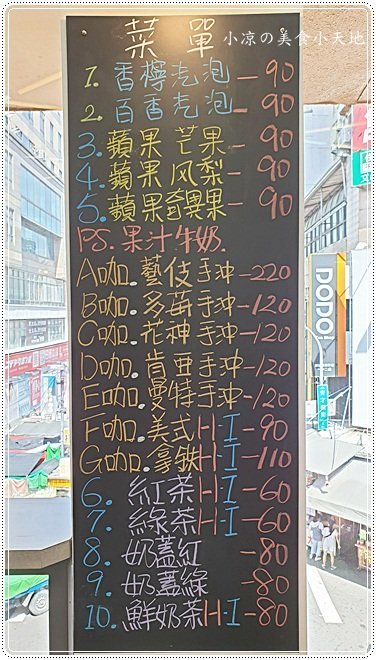 小凉の美食小天地
菜單
1. 香檸气泡-90
2. 百香气泡-90
3. 蘋果芒果-90
4. 蘋果风梨-90
5. 蘋果奇異果-90
PS. 果汁牛奶.
A咖.藝伎手冲-220
B咖.多莓手冲-120
C咖.花神手冲-120
D咖.肯亚手冲-120
E咖.曼特手冲-120
F咖.美式H-I-90
G咖.拿鉄H-I-110
6. 紅茶H-I-60
7. 綠茶H-I-60
8. 奶蓋紅-80
9. 奶蓋綠-80
10. 鮮奶茶H-I-80
DODO!